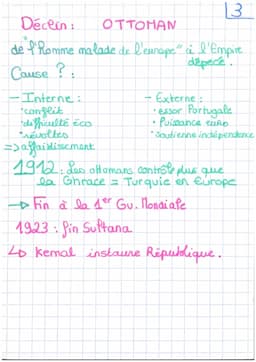 3
Déclin : OTTOMAN
de "l'homme malade de l'europe" à l'Empire
dépecé.
Cause ? :
- Interne :
· conflit
· difficulté éco
· révoltes
=> affaiblissement
- Externe :
· essor Portugale
· Puissance euro
· Soutienne indépendance
1912 : Les ottomans contrôle plus que
la Thrace = Turquie en Europe
-> Fin à la 1er Gu. Mondiale
1923 : fin Sultana
↳ Kemal instaure République.